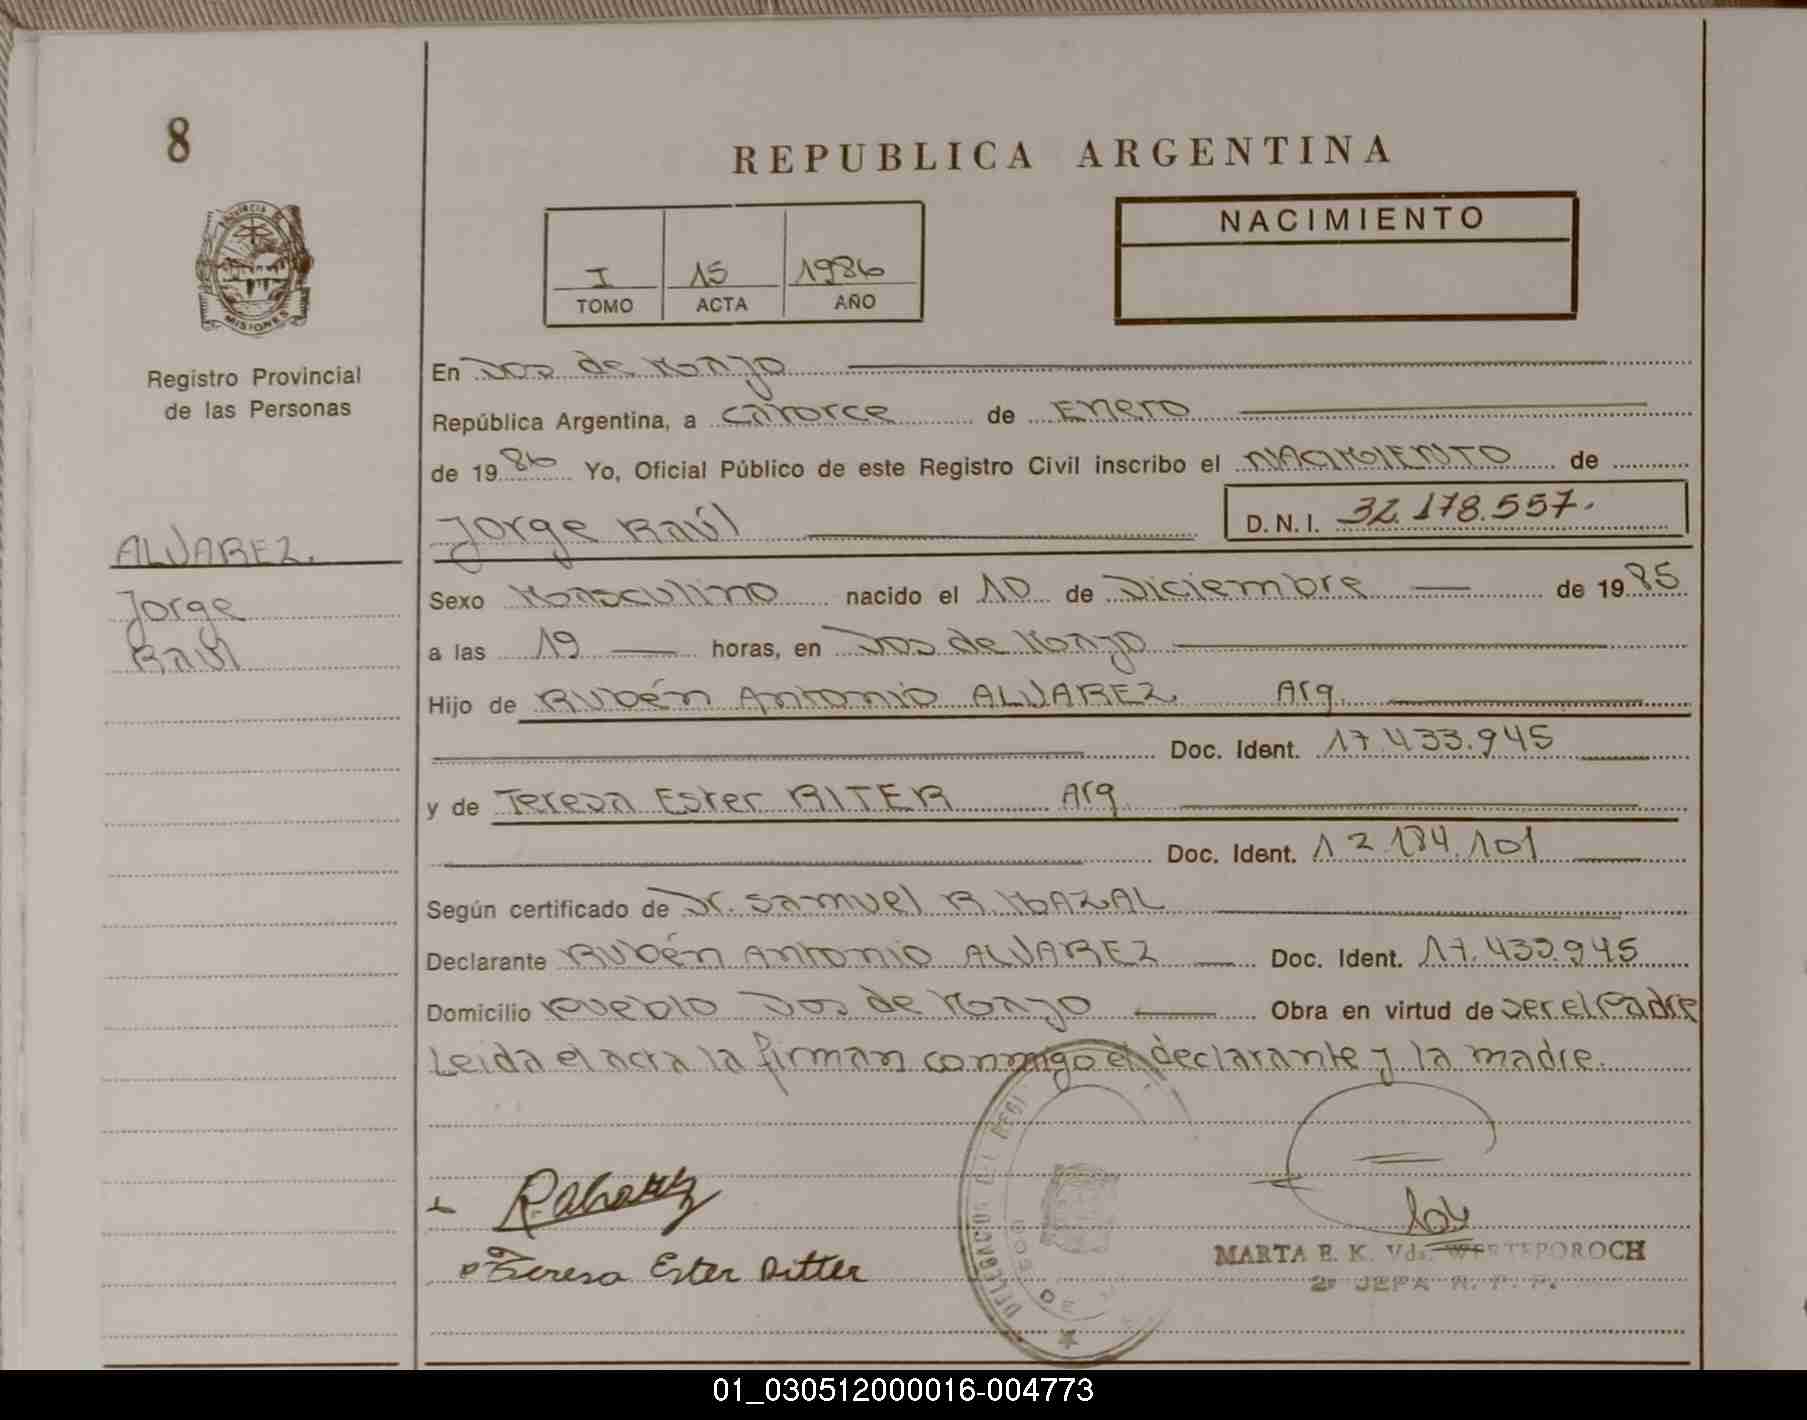 8
REPUBLICA ARGENTINA
PROVINCIA DE
MISIONES
Registro Provincial
de las Personas
I 15 1986
TOMO ACTA AÑO
NACIMIENTO
En Dos de Mayo
República Argentina, a catorce de Enero
de 1986 Yo, Oficial Público de este Registro Civil inscribo el NACIMIENTO de
Jorge Raúl D.N.I. 32.178.557.
ALVAREZ.
Jorge
Raúl
Sexo Masculino nacido el 10 de Diciembre de 1985
a las 19 horas, en Dos de Mayo
Hijo de Rubén Antonio ALVAREZ Arg.
Doc. Ident. 17.433.945
y de Teresa Ester RITER Arg
Doc. Ident. 12.184.101
Según certificado de Dr. Samuel R. MAZAL
Declarante Rubén Antonio ALVAREZ Doc. Ident. 17.433.945
Domicilio Pueblo Dos de Mayo Obra en virtud de ser el Padre
Leida el acta la firman conmigo el declarante y la madre.
R. Alvarez
Teresa Ester Ritter
DELEGACION DEL REGI
MARTA E. K. Vda. WERTEPOROCH
2º JEFA R. P. P.
01_030512000016-004773